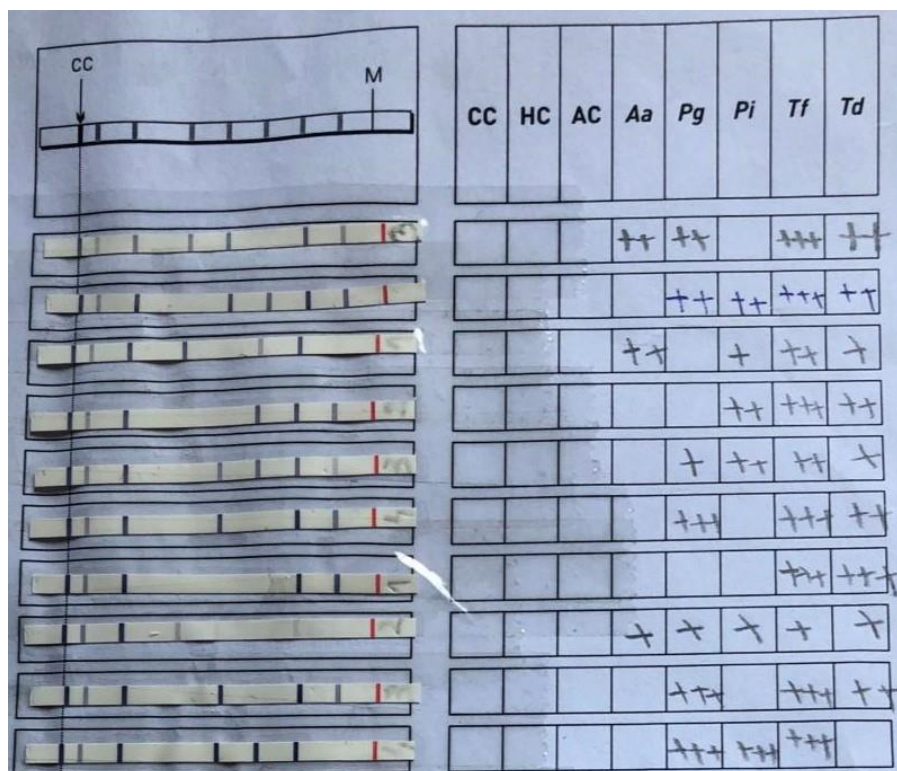 CC M
CC HC AC Aa Pg Pi Tf Td
++ ++ +++ ++
++ ++ +++ ++
++ + ++ +
++ +++ ++
+ ++ ++ +
+++ +++ ++
+++ +++
+ + + + +
+++ +++ ++
+++ +++ +++